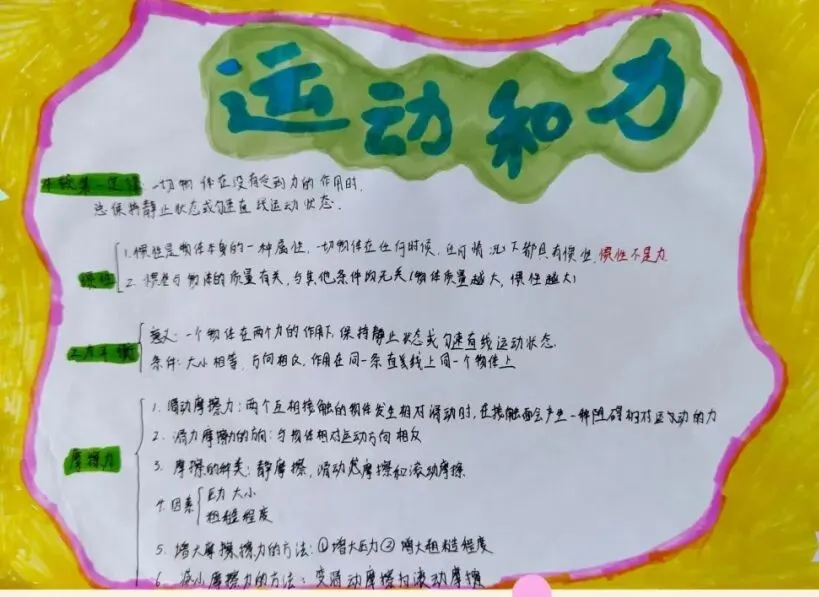 运动和力
牛顿第一定律: 一切物体在没有受到力的作用时,
总保持静止状态或匀速直线运动状态.
惯性
1. 惯性是物体本身的一种属性, 一切物体在任何时候, 任何情况下都具有惯性, 惯性不是力.
2. 惯性与物体的质量有关, 与其他条件均无关(物体质量越大, 惯性越大)
二力平衡
意义: 一个物体在两个力的作用下, 保持静止状态或匀速直线运动状态.
条件: 大小相等, 方向相反, 作用在同一条直线上同一个物体上
摩擦力
1. 滑动摩擦力: 两个互相接触的物体发生相对滑动时, 在接触面会产生一种阻碍相对运动的力
2. 滑力摩擦力的方向: 与物体相对运动方向相反
3. 摩擦的种类: 静摩擦, 滑动摩擦和滚动摩擦
4. 因素
压力大小
粗糙程度
5. 增大摩擦擦力的方法: ①增大压力② 增大粗糙程度
6. 减小摩擦力的方法: 变滑动摩擦为滚动摩擦